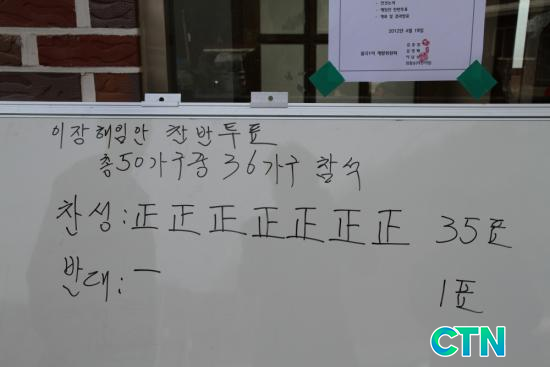 2012년 4월 18일
이장해임안 찬반투표
총50가구중 36가구 참석
찬성: 正正正正正正正 35표
반대: 一 1표
CTN